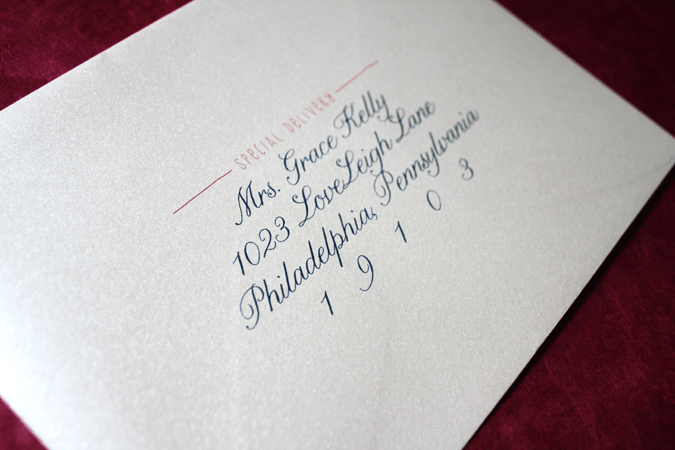 SPECIAL DELIVERY
Mrs. Grace Kelly
1023 LoveLeigh Lane
Philadelphia, Pennsylvania
1 9 1 0 3